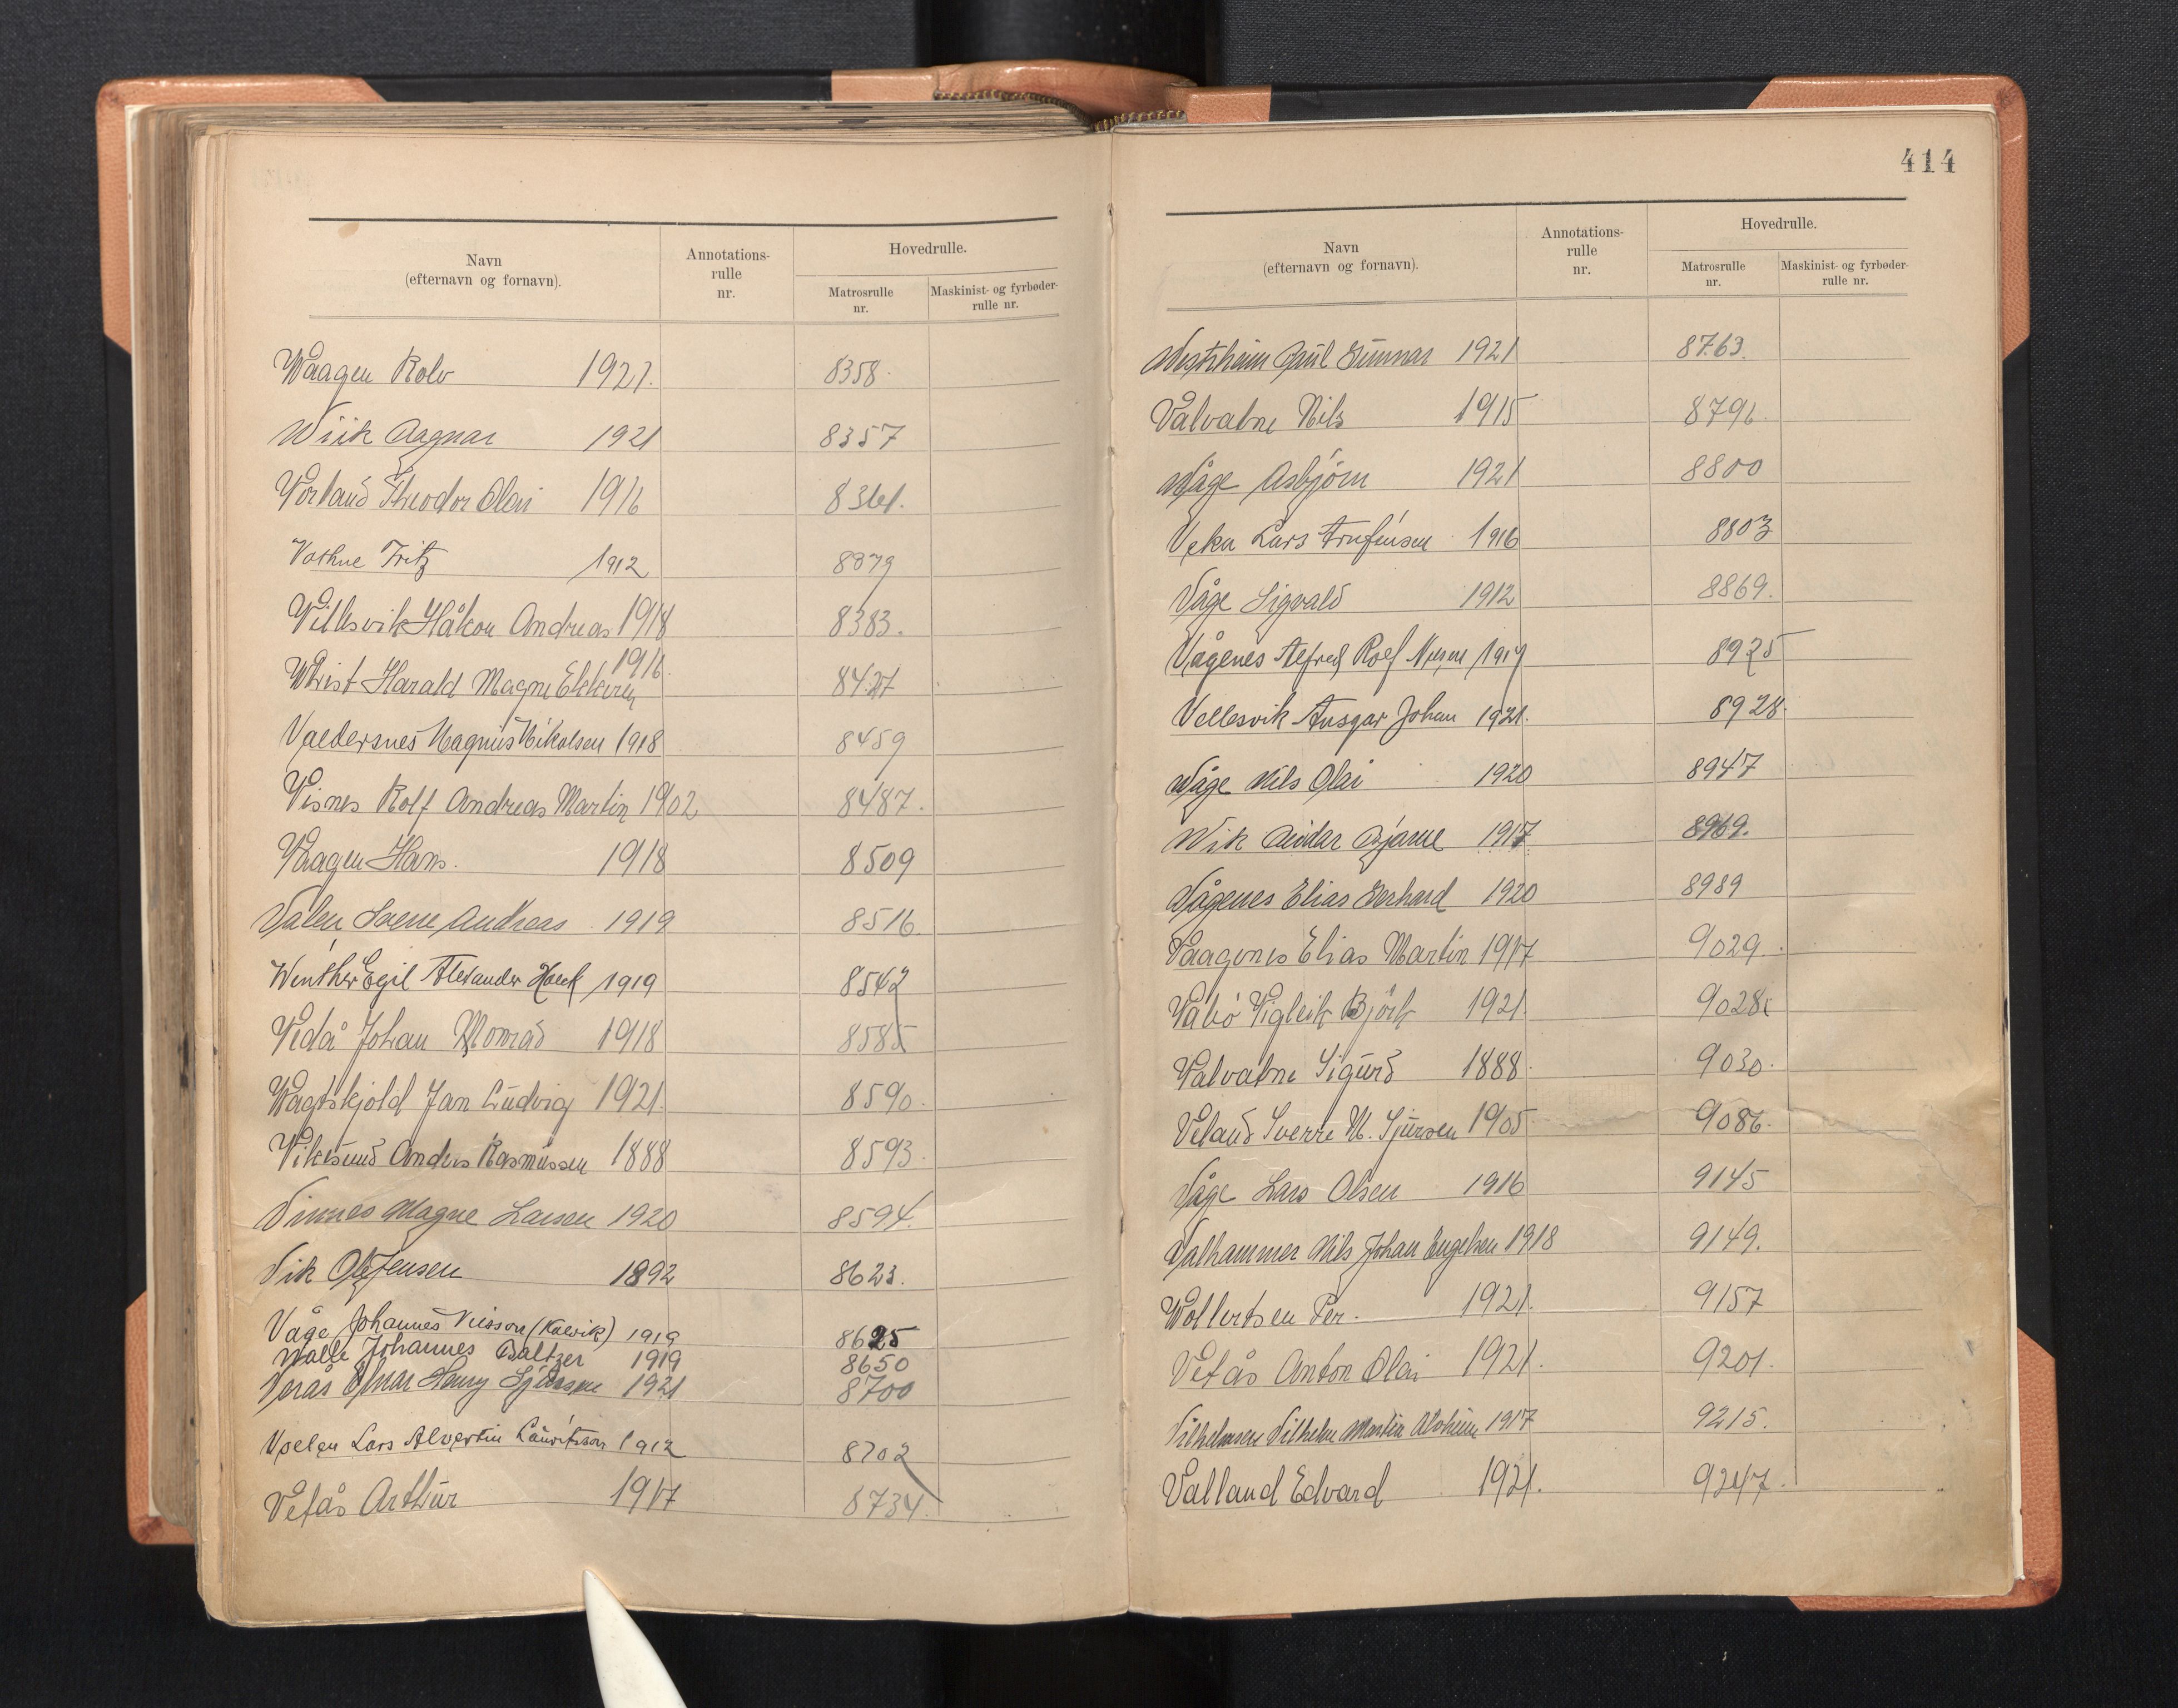 Navn
(efternavn og fornavn).
Annotations-
rulle
nr.
Hovedrulle.
Matrosrulle
nr.
Maskinist- og fyrbøder-
rulle nr.
Waagen Rolv 1921. 8358.
Wiik Ragnar 1921 8357
Vorland Theodor Olai 1916 8361.
Vothne Fritz 1912 8379
Villesvik Håkon Andreas 1918 8383.
1916.
Harald Magne 8427
Valdersnes Magnus Nikolsen 1918 8459
Visnes Rolf Andreas Martin 1902 8487.
Vaagen Hans. 1918 8509
Valen Sverre Andreas 1919 8516
Winther Egil Alexander Holck 1919 8542
Vedå Johan Monrad 1918 8585
Wagtskjold Jan Ludvig 1921. 8590.
Viksund Anders Rasmussen 1888 8593.
Vinnes Magne Larsen 1920 8594.
Vik Ole Jensen 1892 8623.
Våge Johannes Nilsson (Kalvik) 1919 8625
Walle Johannes Baltzer 1919 8650
Harry 1921 8700
Lars Alvertin Lauritsson 1912 8702
Vetås Arthur 1917 8734.
414
Navn
(efternavn og fornavn).
Annotations-
rulle
nr.
Hovedrulle.
Matrosrulle
nr.
Maskinist- og fyrbøder-
rulle nr.
Westrheim Paul Gunnar 1921 8763.
Valvatne Nils 1915 8796.
Våge Asbjørn 1921 8800
Veka Lars Arnfinsen 1916 8803
Våge Sigvald 1912 8869.
Vågenes Alfred Rolf 8925
Vellesvik Ansgar Johan 1921. 8928.
Våge Nils Olai 1920 8947
Wik Reidar Bjarne 1917 8969.
Vågenes Elias Gerhard 1920 8989
Vaagenes Elias Martin 1917 9029.
Vabø Vigleik Bjørk 1921. 9028
Valvatne Sigurd 1888. 9030.
Veland Sverre M. Sjursen 1905 9086.
Våge Lars Olsen 1916 9145
Valhammer Nils Johan Engelsen 1918 9149.
Wollertsen Per. 1921. 9157
Vetås Anton Olai 1921. 9201.
Vilhelmsen Vilhelm Martin 1917 9215.
Valland Edvard 1921. 9247.